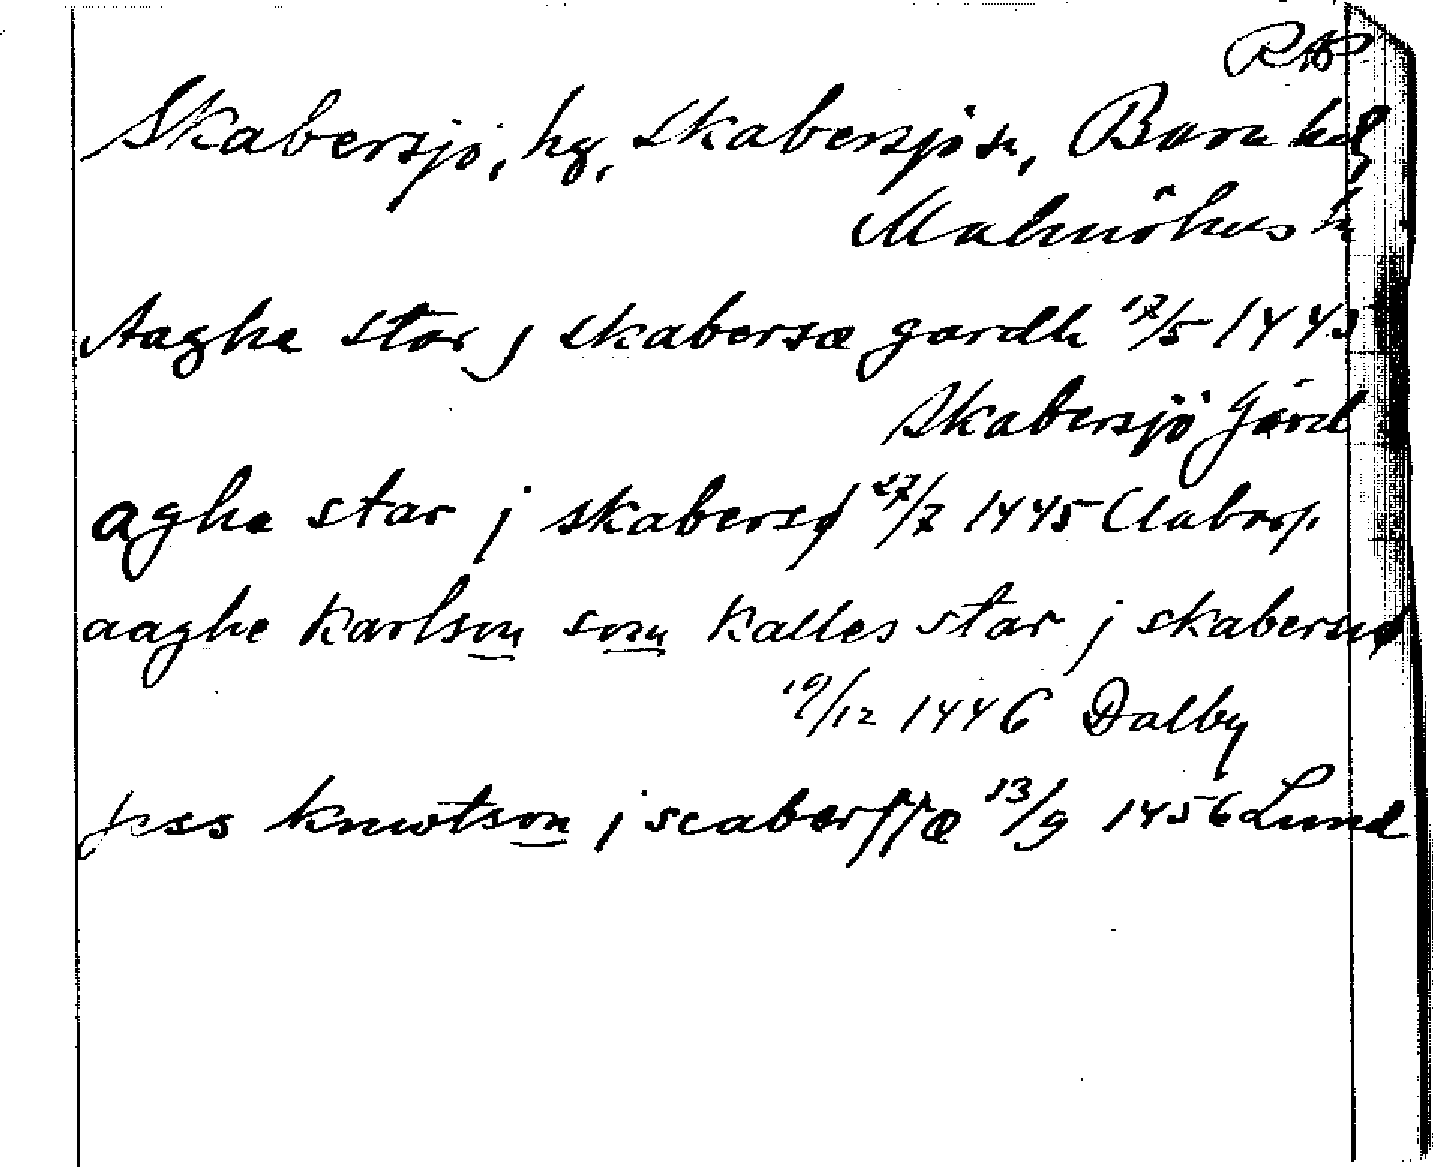 RAP
Skabersjö, hg, Skabersjö sn, Bara hd,
Malmöhus l
Aaghe star j skabersæ gardh 17/5 1445
Skabersjö Gård
aghe star j skabersø 27/7 1445
aaghe karlson som kalles star j skabersiø
19/12 1446 Dalby
jess knwtson j scaberssæ 13/9 1456 Lund